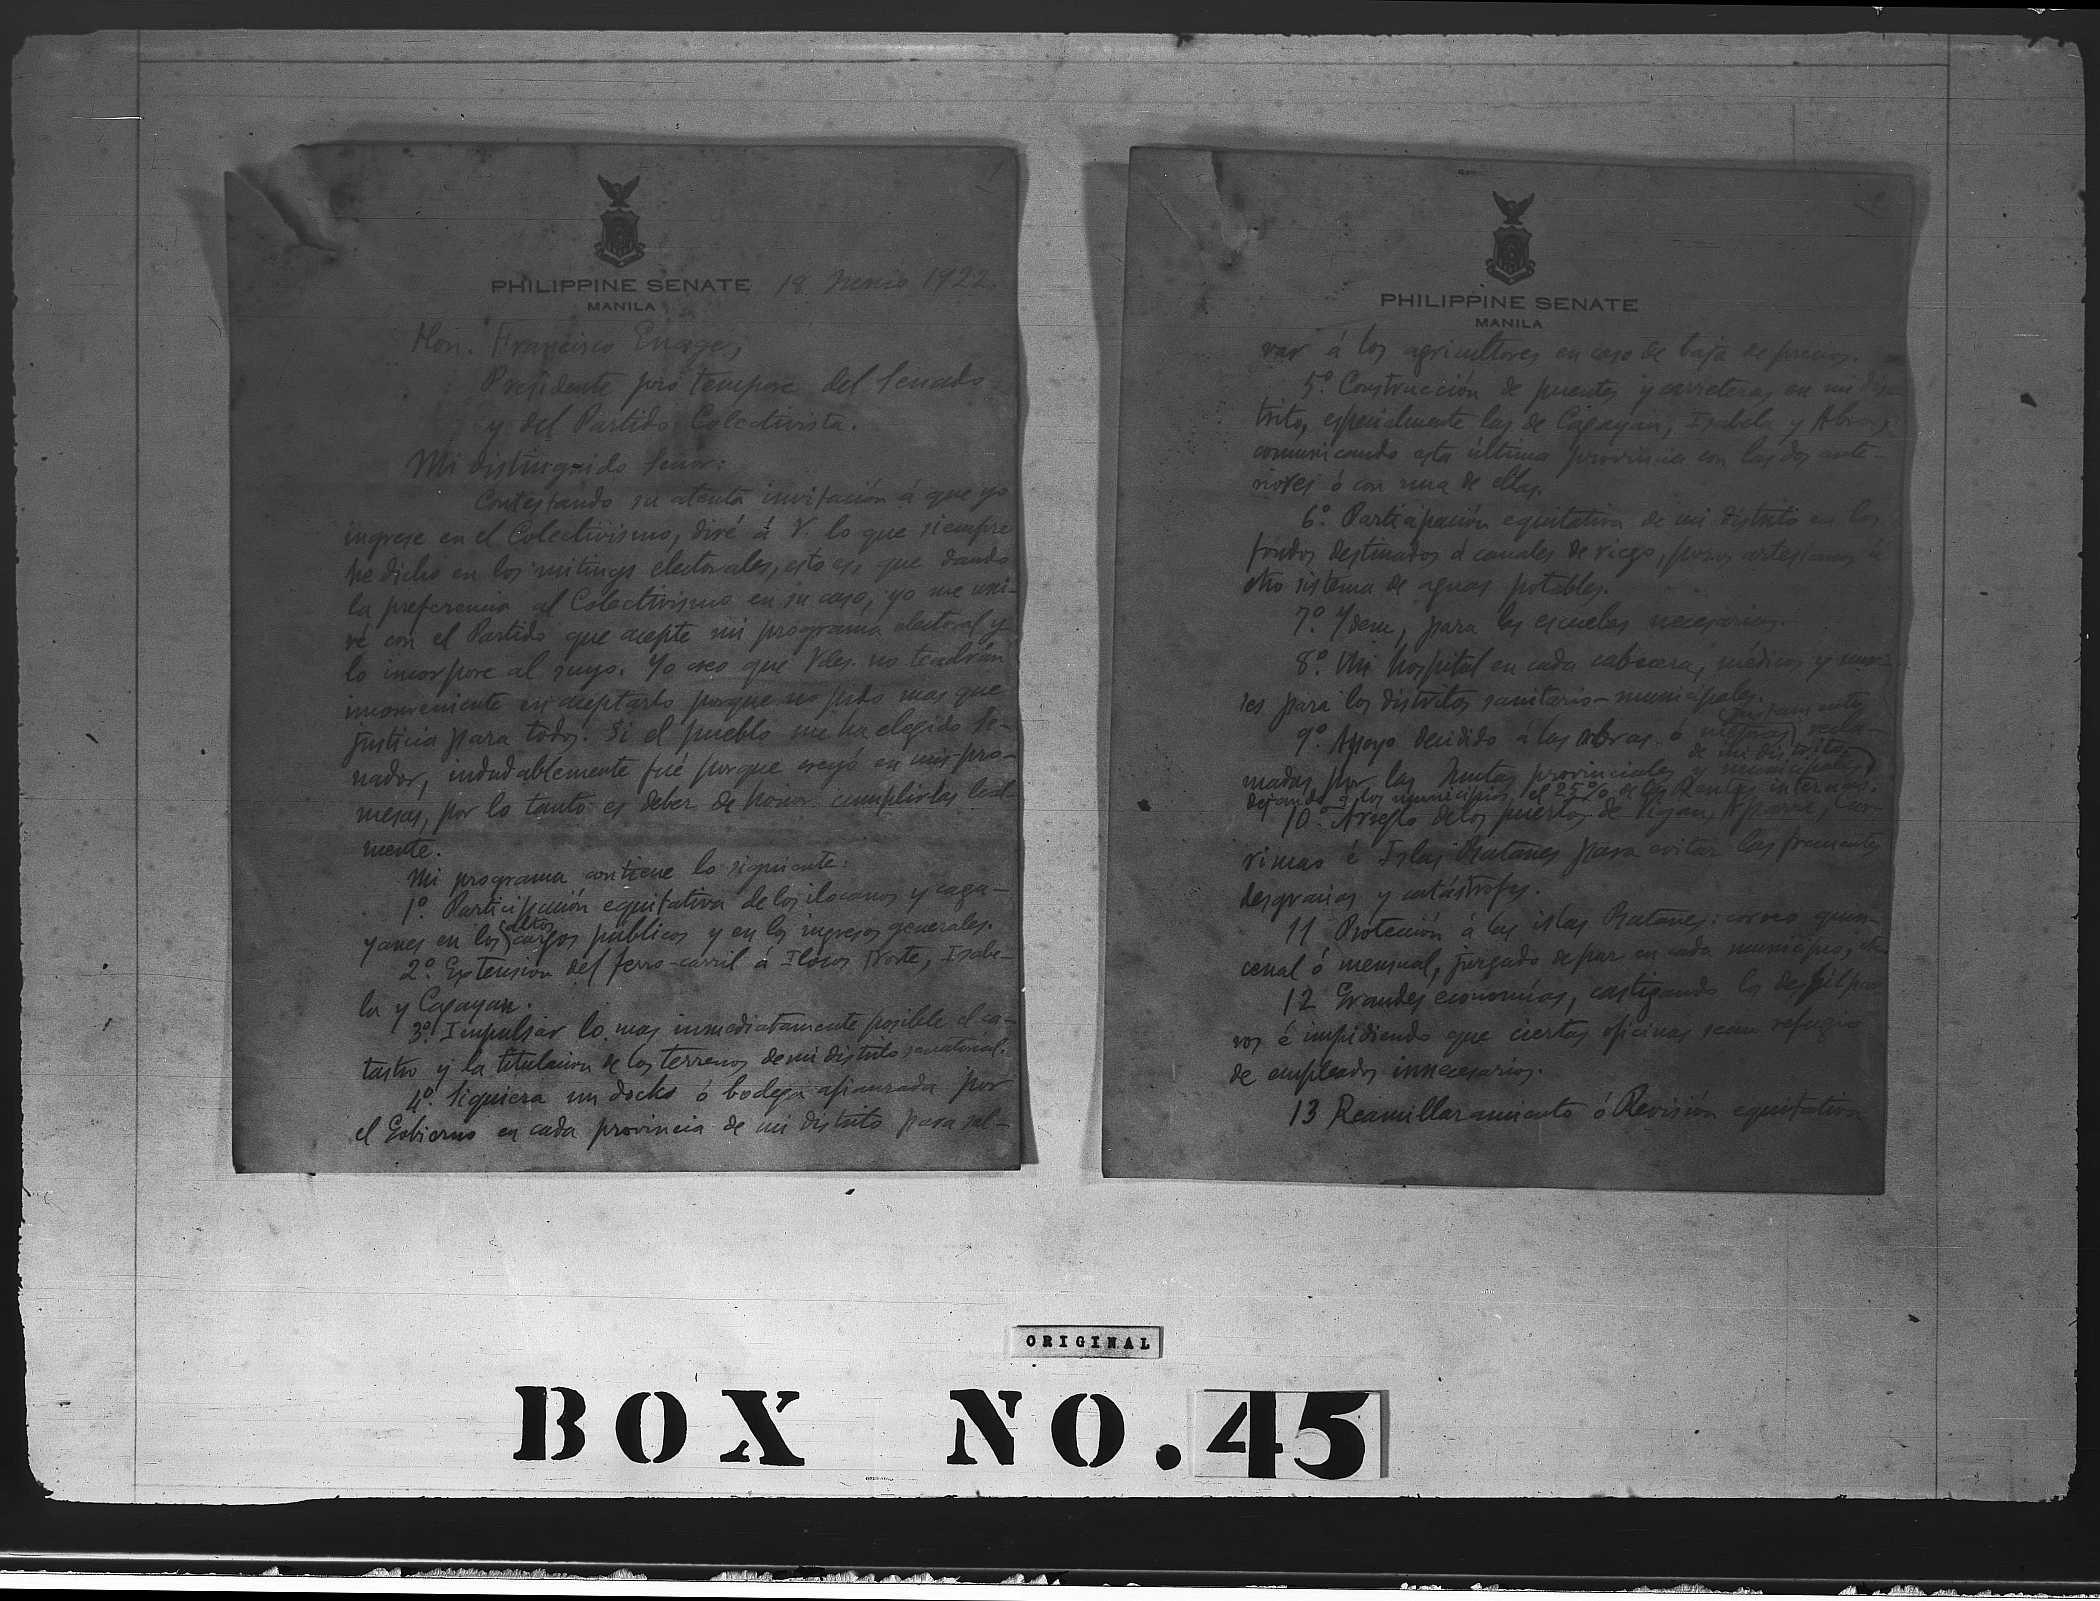 1
PHILIPPINE SENATE 18 Junio 1922.
MANILA
Hon. Francisco Enage,
Presidente pro tempore del Senado
y del Partido Colectivista.
Mi distinguido Señor:
Contestando su atenta invitación á que yo
ingrese en el Colectivismo, diré á V. lo que siempre
he dicho en los mitings electorales, esto es, que dando
la preferencia al Colectivismo en su caso, yo me uni-
ré con el Partido que acepte mi programa electoral y
lo incorpore al suyo. Yo creo que Vdes. no tendrán
inconveniente en aceptarlo porque no pido mas que
justicia para todos. Si el pueblo me ha elegido Se-
nador, indudablemente fué porque creyó en mis pro-
mesas, por lo tanto es deber de honor cumplirlas leal-
mente.
Mi programa contiene lo siguiente:
1º. Participación equitativa de los ilocanos y caga-
yanes en los altos cargos públicos y en los ingresos generales.
2º. Extensión del ferro-carril á Ilocos Norte, Isabe-
la y Cagayan.
3º. Impulsar lo mas inmediatamente posible el ca-
tastro y la titulacion de los terrenos de mi distrito senatorial.
4º. Siquiera un docks ó bodega afianzada por
el Gobierno en cada provincia de mi distrito para sal-
PHILIPPINE SENATE
MANILA
var á los agricultores en caso de baja de precios.
5º Construcción de puentes y carreteras en mi dis-
trito, especialmente las de Cagayan, Isabela y Abra,
comunicando esta última provincia con las dos ante-
riores ó con una de ellas.
6º. Participación equitativa de mi distrito en los
fondos destinados á canales de riego, pozos artesianos ú
otro sistema de aguas potables.
7º. Ydem, para las escuelas necesarias.
8º. Un hospital en cada cabecera, médicos y
para los distritos sanitario-municipales.
justamente
9º. Apoyo decidido á las obras ó mejoras recla-
de mi distrito
madas por las Juntas provinciales y municipales
dejando á los municipios el 25% de las Rentas internas.
10º. Arreglo de los puertos de Vigan, Aparri, Cur-
rimao é Islas Batanes para evitar las frecuentes
desgracias y catástrofes.
11 Protección á las islas Batanes: correo quin-
cenal ó mensual, juzgado de paz en cada municipio,
12 Grandes economías, castigando los despilfar
ros é impidiendo que ciertas oficinas sean refugio
de empleados innecesarios.
13 Reamillaramiento ó Revisión equitativa
ORIGINAL
BOX NO. 45